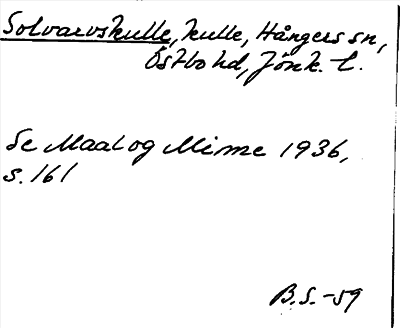 Solvarvskulle, kulle, Hångers sn,
Östbo hd, Jönk. l.
Se Maal og Minne 1936,
s. 161
B.S.-59